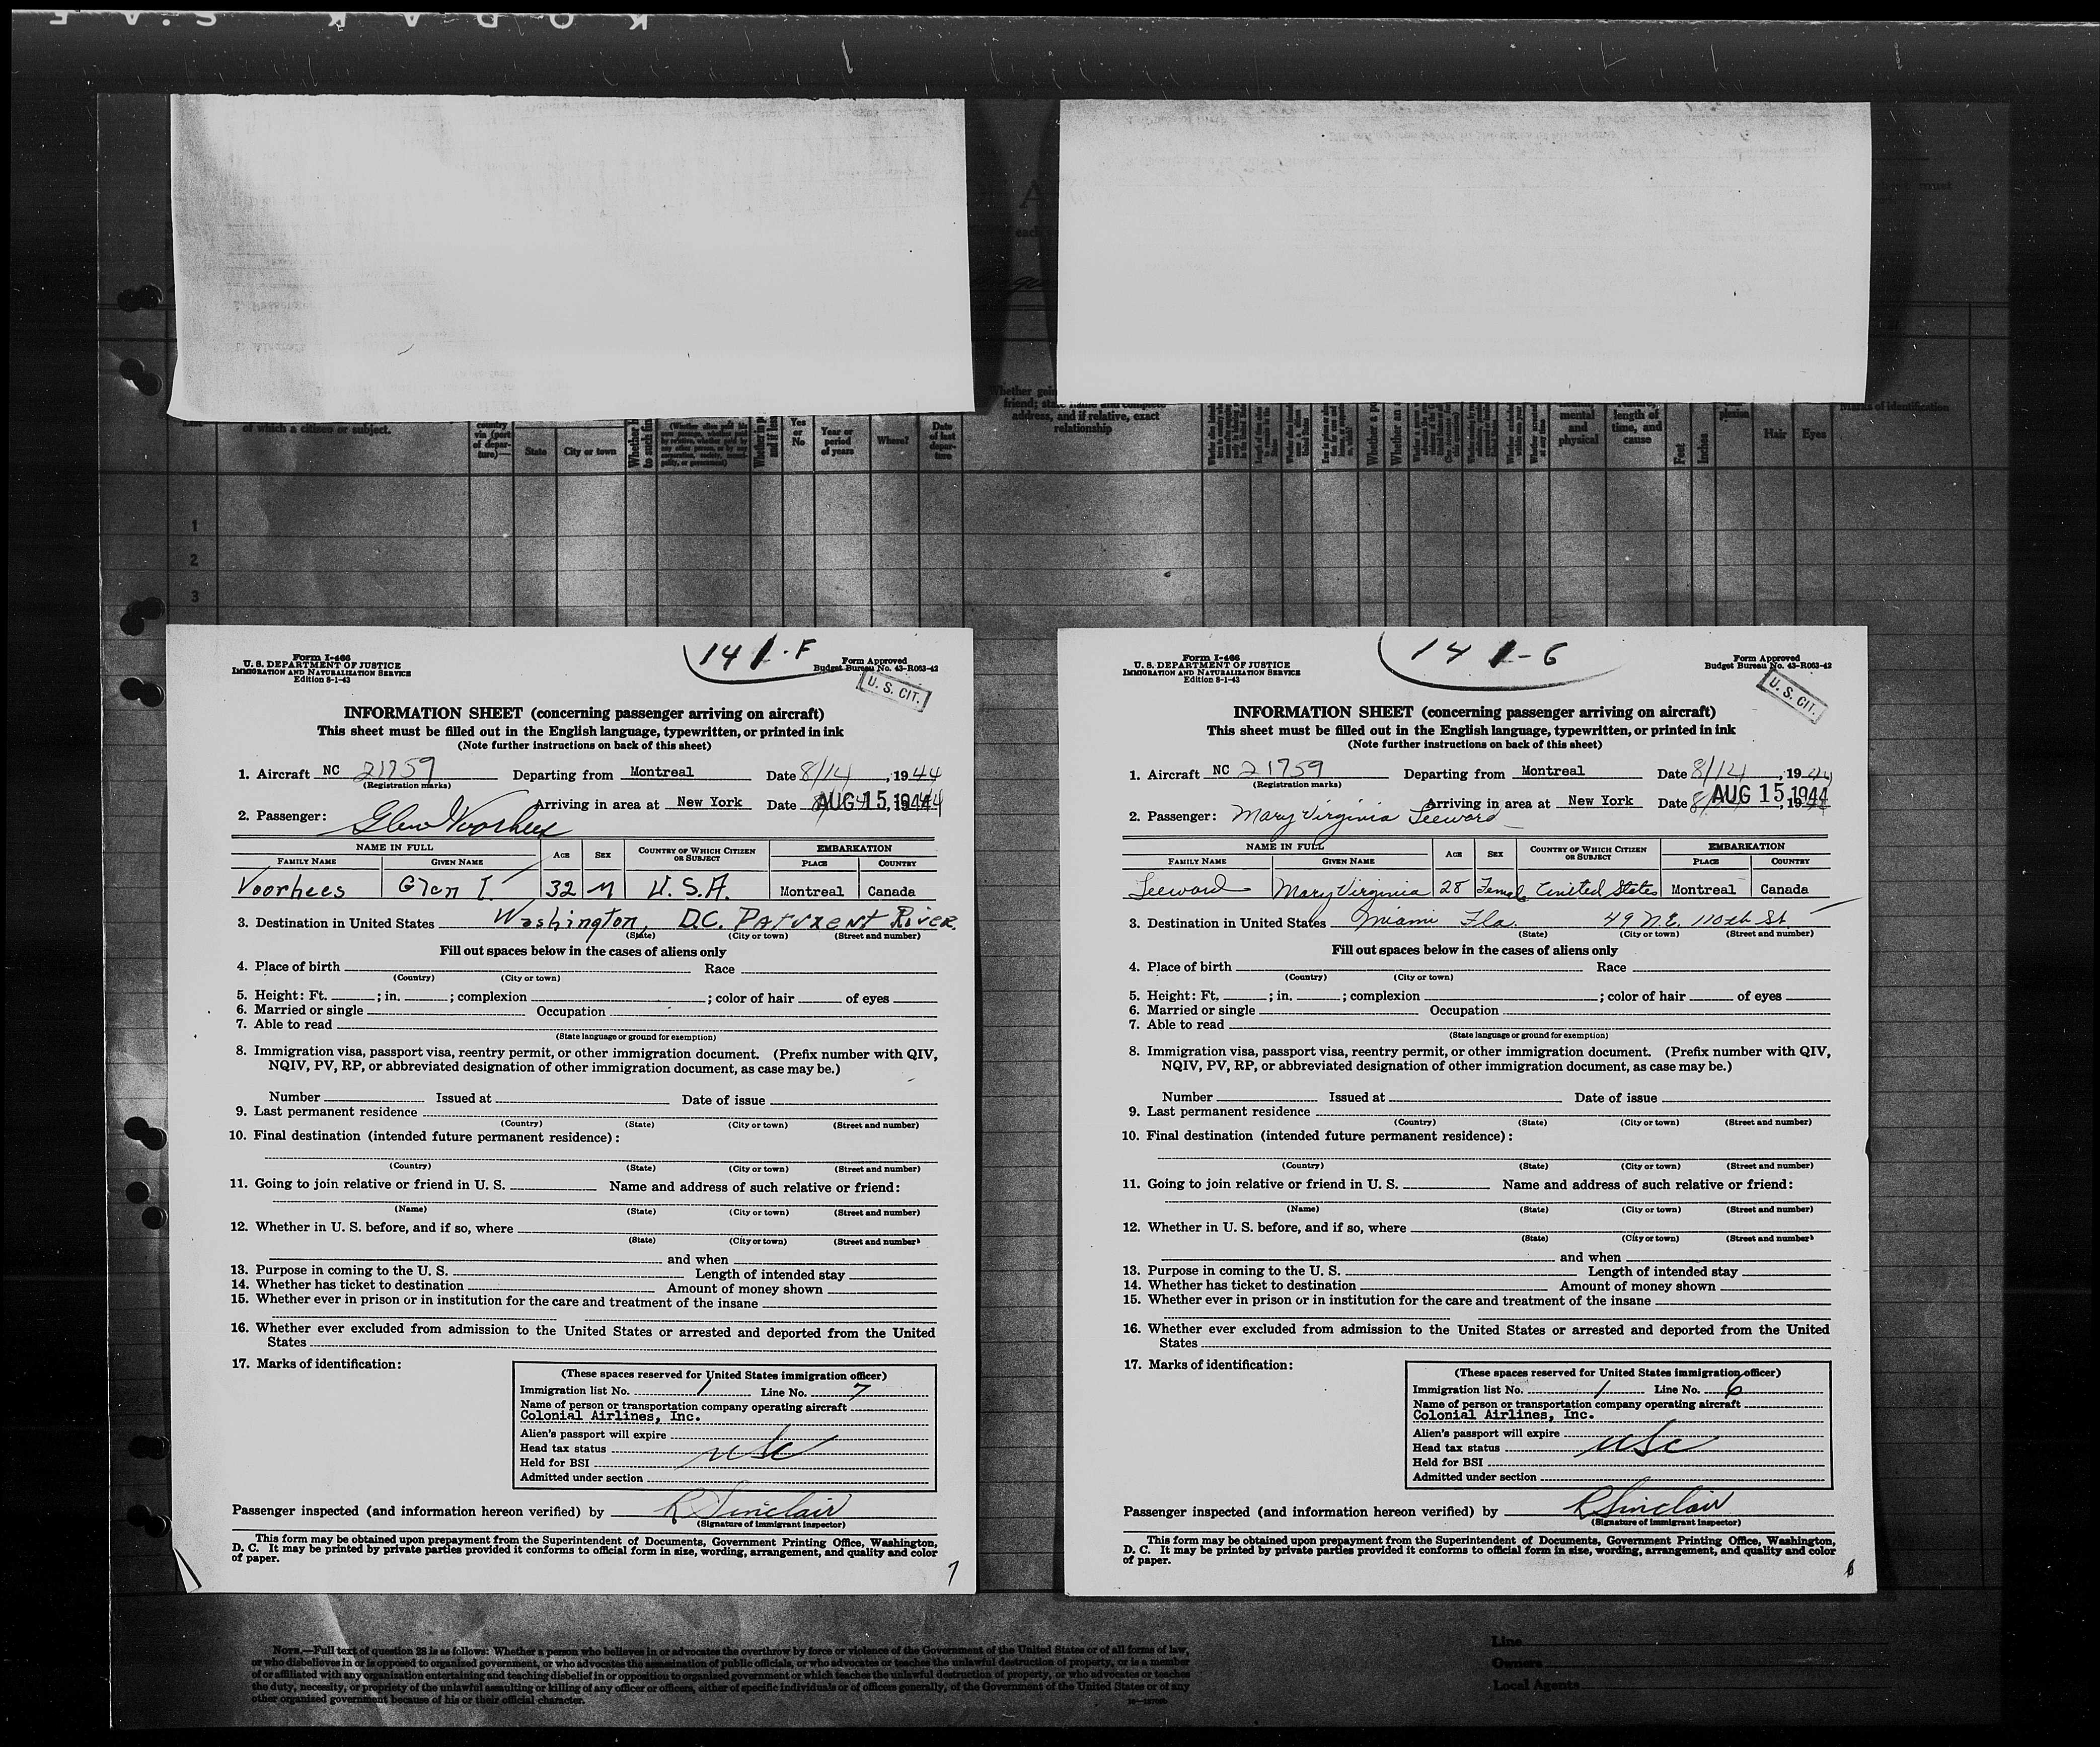 KODAK
of which a citizen or subject.
country
via (port
of depar-
ture)—
State
City or town
Yes
or
No
Year or
period
of years
Where?
Date
of last
depar-
ture
address, and if relative, exact
relationship
mental
and
physical
length of
time, and
cause
Feet
Inches
Hair
Eyes
Marks of identification
1
2
3
141-F
Form I-466
U. S. DEPARTMENT OF JUSTICE
IMMIGRATION AND NATURALIZATION SERVICE
Edition 8-1-43
Form Approved
Budget Bureau No. 43-R063-42
U. S. CIT.
INFORMATION SHEET (concerning passenger arriving on aircraft)
This sheet must be filled out in the English language, typewritten, or printed in ink
(Note further instructions on back of this sheet)
1. Aircraft NC 21759 Departing from Montreal Date 8/14, 1944
(Registration marks)
Arriving in area at New York Date AUG 15, 1944
2. Passenger: Glen Voorhees
NAME IN FULL AGE SEX COUNTRY OF WHICH CITIZEN OR SUBJECT EMBARKATION
FAMILY NAME GIVEN NAME PLACE COUNTRY
Voorhees Glen I. 32 M U.S.A. Montreal Canada
3. Destination in United States Washington, D.C. PATUXENT RIVER
(State) (City or town) (Street and number)
Fill out spaces below in the cases of aliens only
4. Place of birth Race
(Country) (City or town)
5. Height: Ft. ; in. ; complexion ; color of hair of eyes
6. Married or single Occupation
7. Able to read
(State language or ground for exemption)
8. Immigration visa, passport visa, reentry permit, or other immigration document. (Prefix number with QIV,
NQIV, PV, RP, or abbreviated designation of other immigration document, as case may be.)
Number Issued at Date of issue
9. Last permanent residence
(Country) (State) (City or town) (Street and number)
10. Final destination (intended future permanent residence):
(Country) (State) (City or town) (Street and number)
11. Going to join relative or friend in U. S. Name and address of such relative or friend:
(Name) (State) (City or town) (Street and number)
12. Whether in U. S. before, and if so, where
(State) (City or town) (Street and number)
and when
13. Purpose in coming to the U. S. Length of intended stay
14. Whether has ticket to destination Amount of money shown
15. Whether ever in prison or in institution for the care and treatment of the insane
16. Whether ever excluded from admission to the United States or arrested and deported from the United
States
17. Marks of identification:
(These spaces reserved for United States immigration officer)
Immigration list No. 1 Line No. 7
Name of person or transportation company operating aircraft
Colonial Airlines, Inc.
Alien's passport will expire
Head tax status USC
Held for BSI
Admitted under section
Passenger inspected (and information hereon verified) by R Sinclair
(Signature of immigrant inspector)
This form may be obtained upon prepayment from the Superintendent of Documents, Government Printing Office, Washington,
D. C. It may be printed by private parties provided it conforms to official form in size, wording, arrangement, and quality and color
of paper.
7
141-G
Form I-466
U. S. DEPARTMENT OF JUSTICE
IMMIGRATION AND NATURALIZATION SERVICE
Edition 8-1-43
Form Approved
Budget Bureau No. 43-R063-42
U. S. CIT.
INFORMATION SHEET (concerning passenger arriving on aircraft)
This sheet must be filled out in the English language, typewritten, or printed in ink
(Note further instructions on back of this sheet)
1. Aircraft NC 21759 Departing from Montreal Date 8/14, 1944
(Registration marks)
Arriving in area at New York Date AUG 15, 1944
2. Passenger: Mary Virginia Leeward
NAME IN FULL AGE SEX COUNTRY OF WHICH CITIZEN OR SUBJECT EMBARKATION
FAMILY NAME GIVEN NAME PLACE COUNTRY
Leeward Mary Virginia 28 Female United States Montreal Canada
3. Destination in United States Miami Fla. 49 N.E. 110th St.
(State) (City or town) (Street and number)
Fill out spaces below in the cases of aliens only
4. Place of birth Race
(Country) (City or town)
5. Height: Ft. ; in. ; complexion ; color of hair of eyes
6. Married or single Occupation
7. Able to read
(State language or ground for exemption)
8. Immigration visa, passport visa, reentry permit, or other immigration document. (Prefix number with QIV,
NQIV, PV, RP, or abbreviated designation of other immigration document, as case may be.)
Number Issued at Date of issue
9. Last permanent residence
(Country) (State) (City or town) (Street and number)
10. Final destination (intended future permanent residence):
(Country) (State) (City or town) (Street and number)
11. Going to join relative or friend in U. S. Name and address of such relative or friend:
(Name) (State) (City or town) (Street and number)
12. Whether in U. S. before, and if so, where
(State) (City or town) (Street and number)
and when
13. Purpose in coming to the U. S. Length of intended stay
14. Whether has ticket to destination Amount of money shown
15. Whether ever in prison or in institution for the care and treatment of the insane
16. Whether ever excluded from admission to the United States or arrested and deported from the United
States
17. Marks of identification:
(These spaces reserved for United States immigration officer)
Immigration list No. 1 Line No. 6
Name of person or transportation company operating aircraft
Colonial Airlines, Inc.
Alien's passport will expire
Head tax status USC
Held for BSI
Admitted under section
Passenger inspected (and information hereon verified) by R Sinclair
(Signature of immigrant inspector)
This form may be obtained upon prepayment from the Superintendent of Documents, Government Printing Office, Washington,
D. C. It may be printed by private parties provided it conforms to official form in size, wording, arrangement, and quality and color
of paper.
6
NOTE.—Full text of question 28 is as follows: Whether a person who believes in or advocates the overthrow by force or violence of the Government of the United States or of all forms of law,
or who disbelieves in or is opposed to organized government, or who advocates the assassination of public officials, or who advocates or teaches the unlawful destruction of property, or is a member
of or affiliated with any organization entertaining and teaching disbelief in or opposition to organized government or which teaches the unlawful destruction of property, or who advocates or teaches
the duty, necessity, or propriety of the unlawful assaulting or killing of any officer or officers, either of specific individuals or of officers generally, of the Government of the United States or of any
other organized government because of his or their official character.
Line
Owners
Local Agents